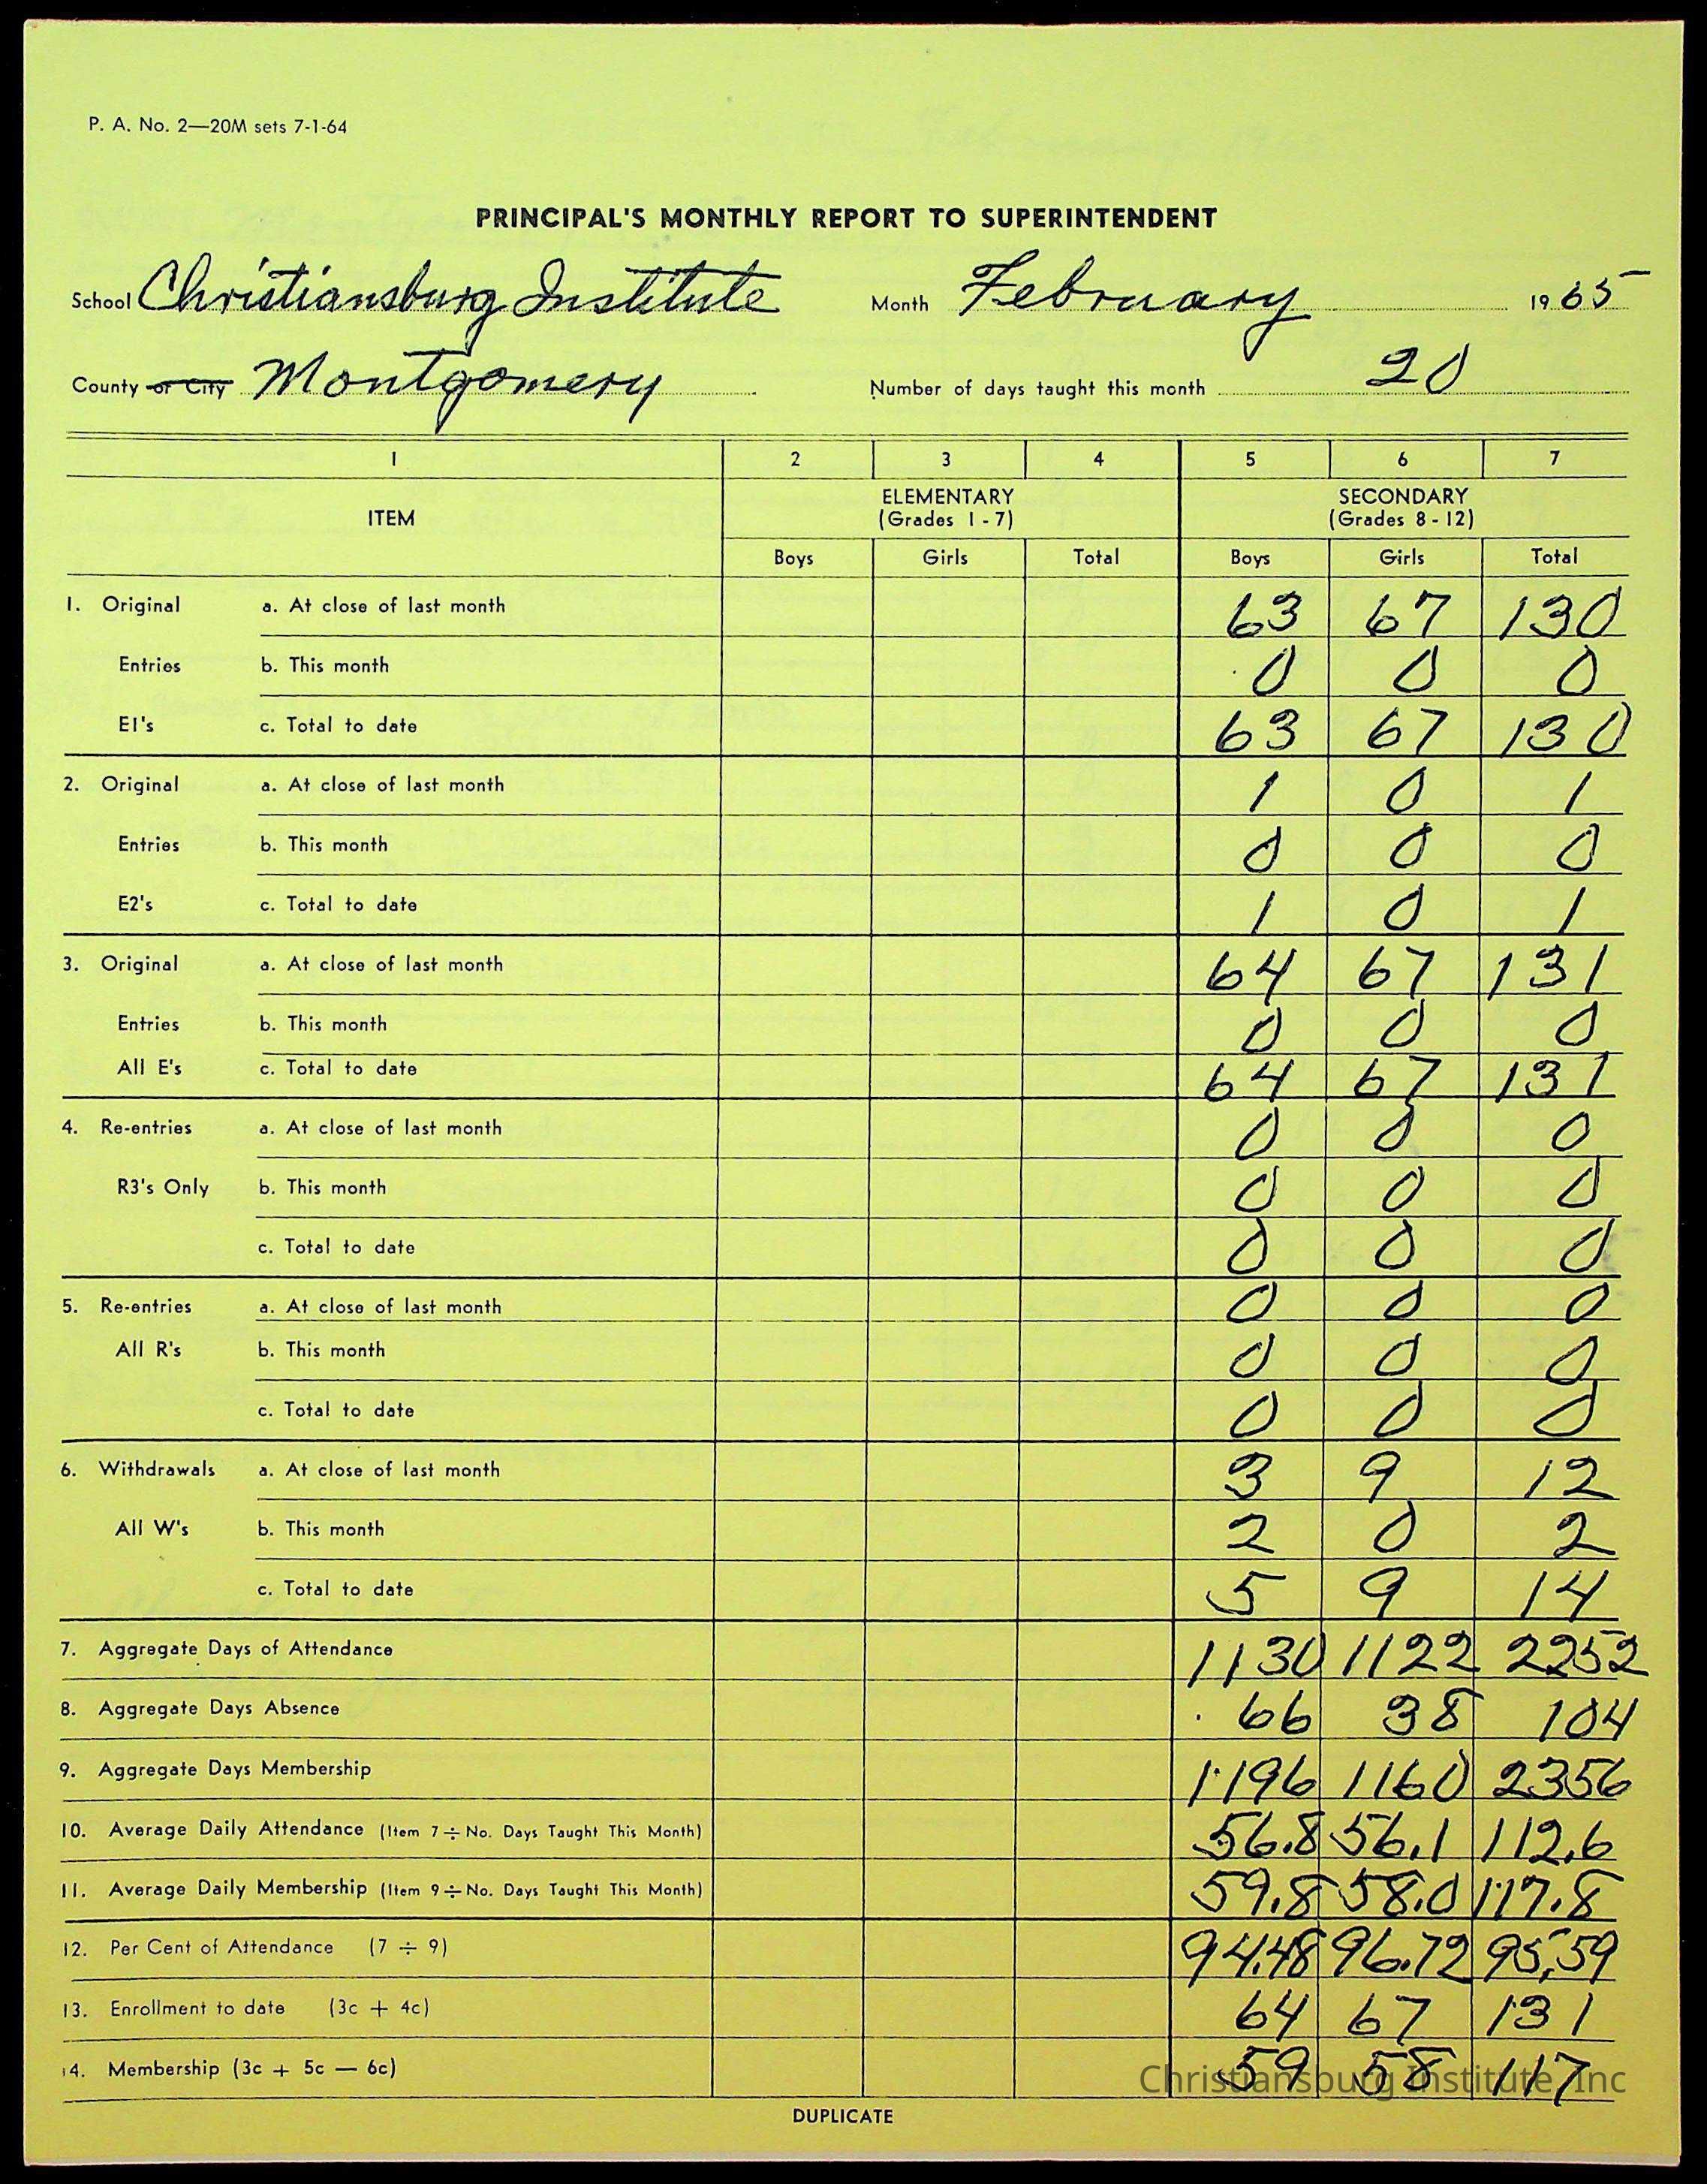 P. A. No. 2—20M sets 7-1-64
PRINCIPAL'S MONTHLY REPORT TO SUPERINTENDENT
School Christiansburg Institute Month February 1965
County or City Montgomery Number of days taught this month 20
1 2 3 4 5 6 7
ITEM ELEMENTARY (Grades 1 - 7) SECONDARY (Grades 8 - 12)
Boys Girls Total Boys Girls Total
1. Original a. At close of last month 63 67 130
Entries b. This month 0 0 0
E1's c. Total to date 63 67 130
2. Original a. At close of last month 1 0 1
Entries b. This month 0 0 0
E2's c. Total to date 1 0 1
3. Original a. At close of last month 64 67 131
Entries b. This month 0 0 0
All E's c. Total to date 64 67 131
4. Re-entries a. At close of last month 0 0 0
R3's Only b. This month 0 0 0
c. Total to date 0 0 0
5. Re-entries a. At close of last month 0 0 0
All R's b. This month 0 0 0
c. Total to date 0 0 0
6. Withdrawals a. At close of last month 3 9 12
All W's b. This month 2 0 2
c. Total to date 5 9 14
7. Aggregate Days of Attendance 1130 1122 2252
8. Aggregate Days Absence 66 38 104
9. Aggregate Days Membership 1196 1160 2356
10. Average Daily Attendance (Item 7 ÷ No. Days Taught This Month) 56.8 56.1 112.6
11. Average Daily Membership (Item 9 ÷ No. Days Taught This Month) 59.8 58.0 117.8
12. Per Cent of Attendance (7 ÷ 9) 94.48 96.72 95.59
13. Enrollment to date (3c + 4c) 64 67 131
14. Membership (3c + 5c — 6c) 59 58 117
Christiansburg Institute, Inc
DUPLICATE